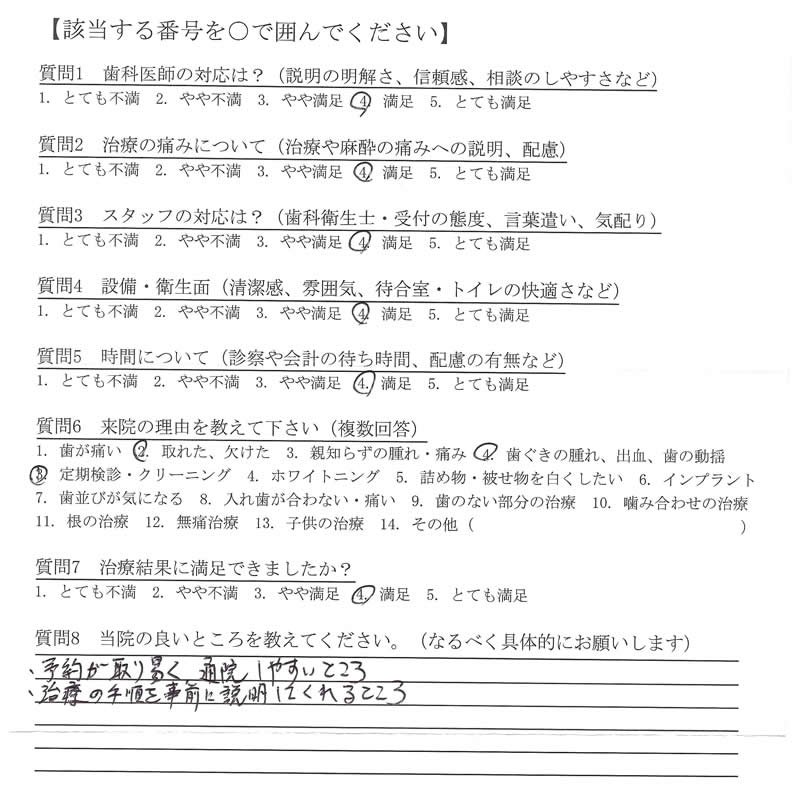 【該当する番号を○で囲んでください】
質問1 歯科医師の対応は？（説明の明解さ、信頼感、相談のしやすさなど）
1. とても不満 2. やや不満 3. やや満足 4. 満足 5. とても満足
質問2 治療の痛みについて（治療や麻酔の痛みへの説明、配慮）
1. とても不満 2. やや不満 3. やや満足 4. 満足 5. とても満足
質問3 スタッフの対応は？（歯科衛生士・受付の態度、言葉遣い、気配り）
1. とても不満 2. やや不満 3. やや満足 4. 満足 5. とても満足
質問4 設備・衛生面（清潔感、雰囲気、待合室・トイレの快適さなど）
1. とても不満 2. やや不満 3. やや満足 4. 満足 5. とても満足
質問5 時間について（診察や会計の待ち時間、配慮の有無など）
1. とても不満 2. やや不満 3. やや満足 4. 満足 5. とても満足
質問6 来院の理由を教えて下さい（複数回答）
1. 歯が痛い 2. 取れた、欠けた 3. 親知らずの腫れ・痛み 4. 歯ぐきの腫れ、出血、歯の動揺
3. 定期検診・クリーニング 4. ホワイトニング 5. 詰め物・被せ物を白くしたい 6. インプラント
7. 歯並びが気になる 8. 入れ歯が合わない・痛い 9. 歯のない部分の治療 10. 噛み合わせの治療
11. 根の治療 12. 無痛治療 13. 子供の治療 14. その他（ ）
質問7 治療結果に満足できましたか？
1. とても不満 2. やや不満 3. やや満足 4. 満足 5. とても満足
質問8 当院の良いところを教えてください。（なるべく具体的にお願いします）
、予約が取り易く 通院しやすいところ
、治療の手順を事前に説明してくれるところ